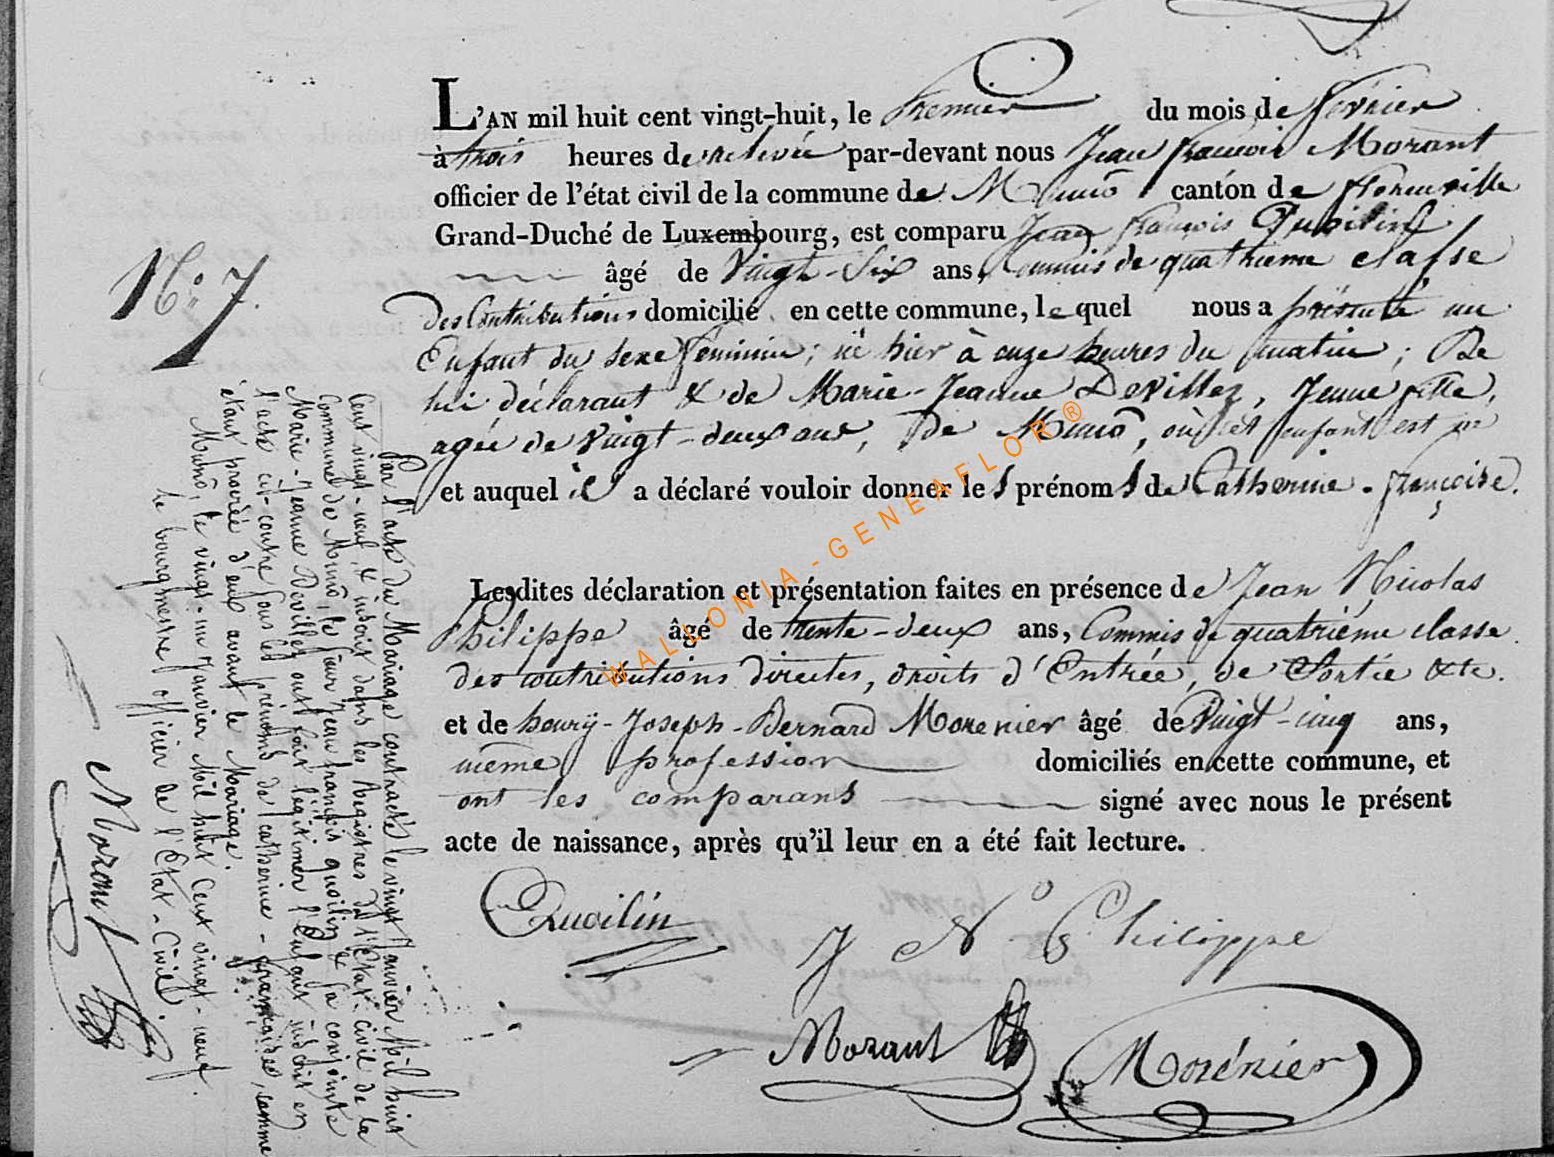 L'AN mil huit cent vingt-huit, le Premier du mois de février
à trois heures de relevée par-devant nous Jean françois Morant
officier de l'état civil de la commune de Munô canton de florenville
Grand-Duché de Luxembourg, est comparu Jean françois Quoilin
âgé de Vingt-Six ans, Commis de quatrieme classe
des Contributions domicilié en cette commune, le quel nous a présenté un
Enfant du sexe féminin; né hier à onze heures du matin; De
lui déclarant & de Marie-Jeanne Devillez, Jeune fille,
agée de Vingt-deux ans, De Munô, où cet enfant est né
et auquel il a déclaré vouloir donner les prénoms de Catherine-françoise.
Lesdites déclaration et présentation faites en présence de Jean Nicolas
Philippe âgé de trente-deux ans, Commis de quatriéme classe
des contributions directes, droits d'Entrée, de Sortie &te.
et de henrÿ-Joseph-Bernard Morenier âgé de Vingt-cinq ans,
même profession domiciliés en cette commune, et
ont les comparans signé avec nous le présent
acte de naissance, après qu'il leur en a été fait lecture.
Quoilin
J N Philippe
Morant
Morénier
No. 7.
Par l'acte du Mariage contracté le vingt Janvier Mil huit
Cent vingt-neuf, & inscrit dans les Registres de l'Etat-civil de la
Commune de Munô, le sieur Jean françois quoilin & la conjointe
Marie-Jeanne Devillez ont fait légitimer l'Enfant inscrit en
l'acte ci-contre sous les prénoms de catherine-françoise, comme
étant procréé d'eux avant le Mariage.
Munô, le vingt-un Janvier Mil huit Cent vingt-neuf.
Le bourgmestre officier de l'Etat-Civil.
Morant
WALLONIA-GENEAFLOR®